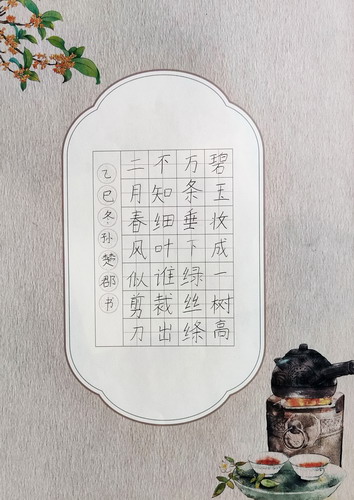 碧玉妆成一树高
万条垂下绿丝绦
不知细叶谁裁出
二月春风似剪刀
乙巳冬孙楚郡书